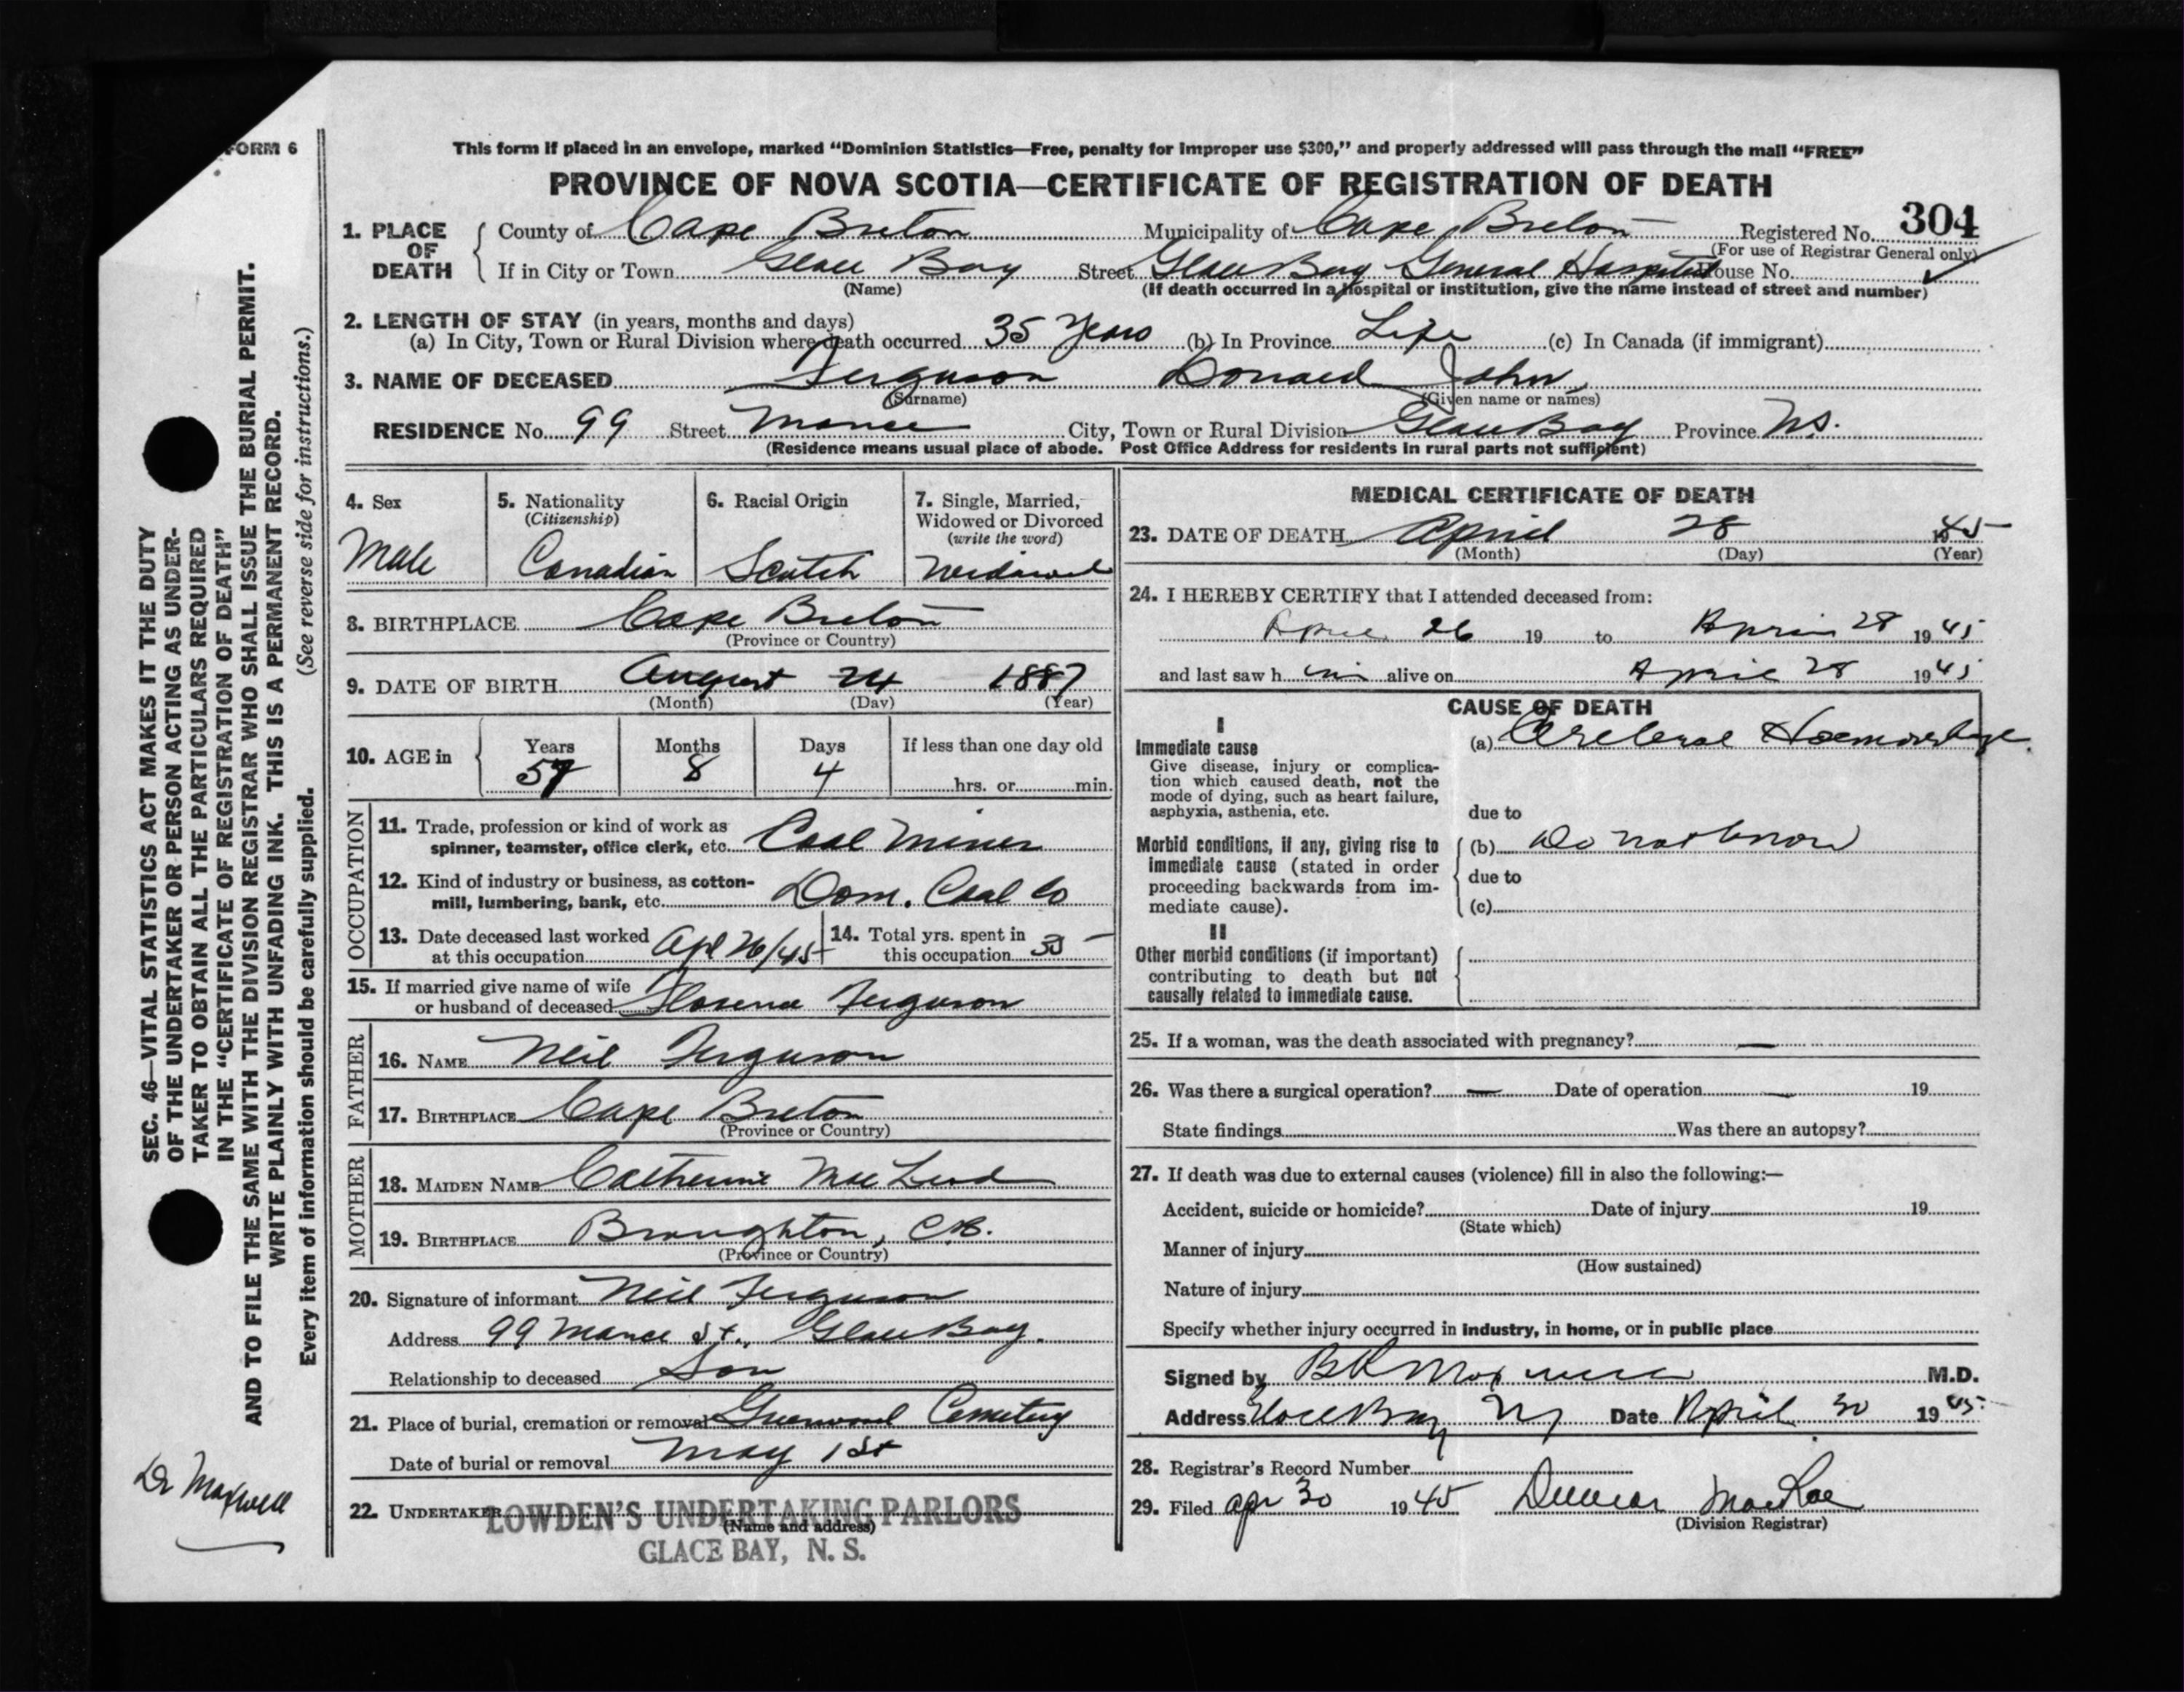 FORM 6
This form if placed in an envelope, marked "Dominion Statistics—Free, penalty for improper use $300," and properly addressed will pass through the mail "FREE"
PROVINCE OF NOVA SCOTIA—CERTIFICATE OF REGISTRATION OF DEATH
1. PLACE OF DEATH County of Cape Breton Municipality of Cape Breton Registered No. 304
(For use of Registrar General only)
If in City or Town Glace Bay Street Glace Bay General Hospital House No.
(Name) (If death occurred in a hospital or institution, give the name instead of street and number)
2. LENGTH OF STAY (in years, months and days)
(a) In City, Town or Rural Division where death occurred 35 Years (b) In Province Life (c) In Canada (if immigrant)
3. NAME OF DECEASED Ferguson Donald John
(Surname) (Given name or names)
RESIDENCE No. 99 Street City, Town or Rural Division Glace Bay Province N.S.
(Residence means usual place of abode. Post Office Address for residents in rural parts not sufficient)
4. Sex
Male
5. Nationality
(Citizenship)
Canadian
6. Racial Origin
Scotch
7. Single, Married,
Widowed or Divorced
(write the word)
Widowed
8. BIRTHPLACE Cape Breton
(Province or Country)
9. DATE OF BIRTH August 24 1887
(Month) (Day) (Year)
10. AGE in Years Months Days If less than one day old
57 8 4 hrs. or min.
OCCUPATION
11. Trade, profession or kind of work as
spinner, teamster, office clerk, etc. Coal Miner
12. Kind of industry or business, as cotton-
mill, lumbering, bank, etc. Dom. Coal Co
13. Date deceased last worked
at this occupation Apl 26/45
14. Total yrs. spent in
this occupation 35
15. If married give name of wife
or husband of deceased Florence Ferguson
FATHER
16. NAME Neil Ferguson
17. BIRTHPLACE Cape Breton
(Province or Country)
MOTHER
18. MAIDEN NAME Catherine MacLeod
19. BIRTHPLACE Broughton, C.B.
(Province or Country)
20. Signature of informant Neil Ferguson
Address 99 St., Glace Bay.
Relationship to deceased Son
21. Place of burial, cremation or removal Greenwood Cemetery
Date of burial or removal May 1st
22. UNDERTAKER LOWDEN'S UNDERTAKING PARLORS
(Name and address)
GLACE BAY, N. S.
MEDICAL CERTIFICATE OF DEATH
23. DATE OF DEATH April 28 1945
(Month) (Day) (Year)
24. I HEREBY CERTIFY that I attended deceased from:
April 26 19 to April 28 1945
and last saw h im alive on April 28 1945
CAUSE OF DEATH
I
Immediate cause (a) Cerebral Haemorrhage
Give disease, injury or complica-
tion which caused death, not the
mode of dying, such as heart failure,
asphyxia, asthenia, etc. due to
Morbid conditions, if any, giving rise to (b) Do not know
immediate cause (stated in order
proceeding backwards from im- due to
mediate cause). (c)
II
Other morbid conditions (if important)
contributing to death but not
causally related to immediate cause.
25. If a woman, was the death associated with pregnancy? —
26. Was there a surgical operation? — Date of operation — 19
State findings Was there an autopsy?
27. If death was due to external causes (violence) fill in also the following:—
Accident, suicide or homicide? Date of injury 19
(State which)
Manner of injury
(How sustained)
Nature of injury
Specify whether injury occurred in industry, in home, or in public place
Signed by M.D.
Address Glace Bay Date April 30 1945
28. Registrar's Record Number
29. Filed Apr 30 1945 Duncan MacRae
(Division Registrar)
SEC. 46—VITAL STATISTICS ACT MAKES IT THE DUTY
OF THE UNDERTAKER OR PERSON ACTING AS UNDER-
TAKER TO OBTAIN ALL THE PARTICULARS REQUIRED
IN THE "CERTIFICATE OF REGISTRATION OF DEATH"
AND TO FILE THE SAME WITH THE DIVISION REGISTRAR WHO SHALL ISSUE THE BURIAL PERMIT.
WRITE PLAINLY WITH UNFADING INK. THIS IS A PERMANENT RECORD.
Every item of information should be carefully supplied. (See reverse side for instructions.)
Dr Maxwell